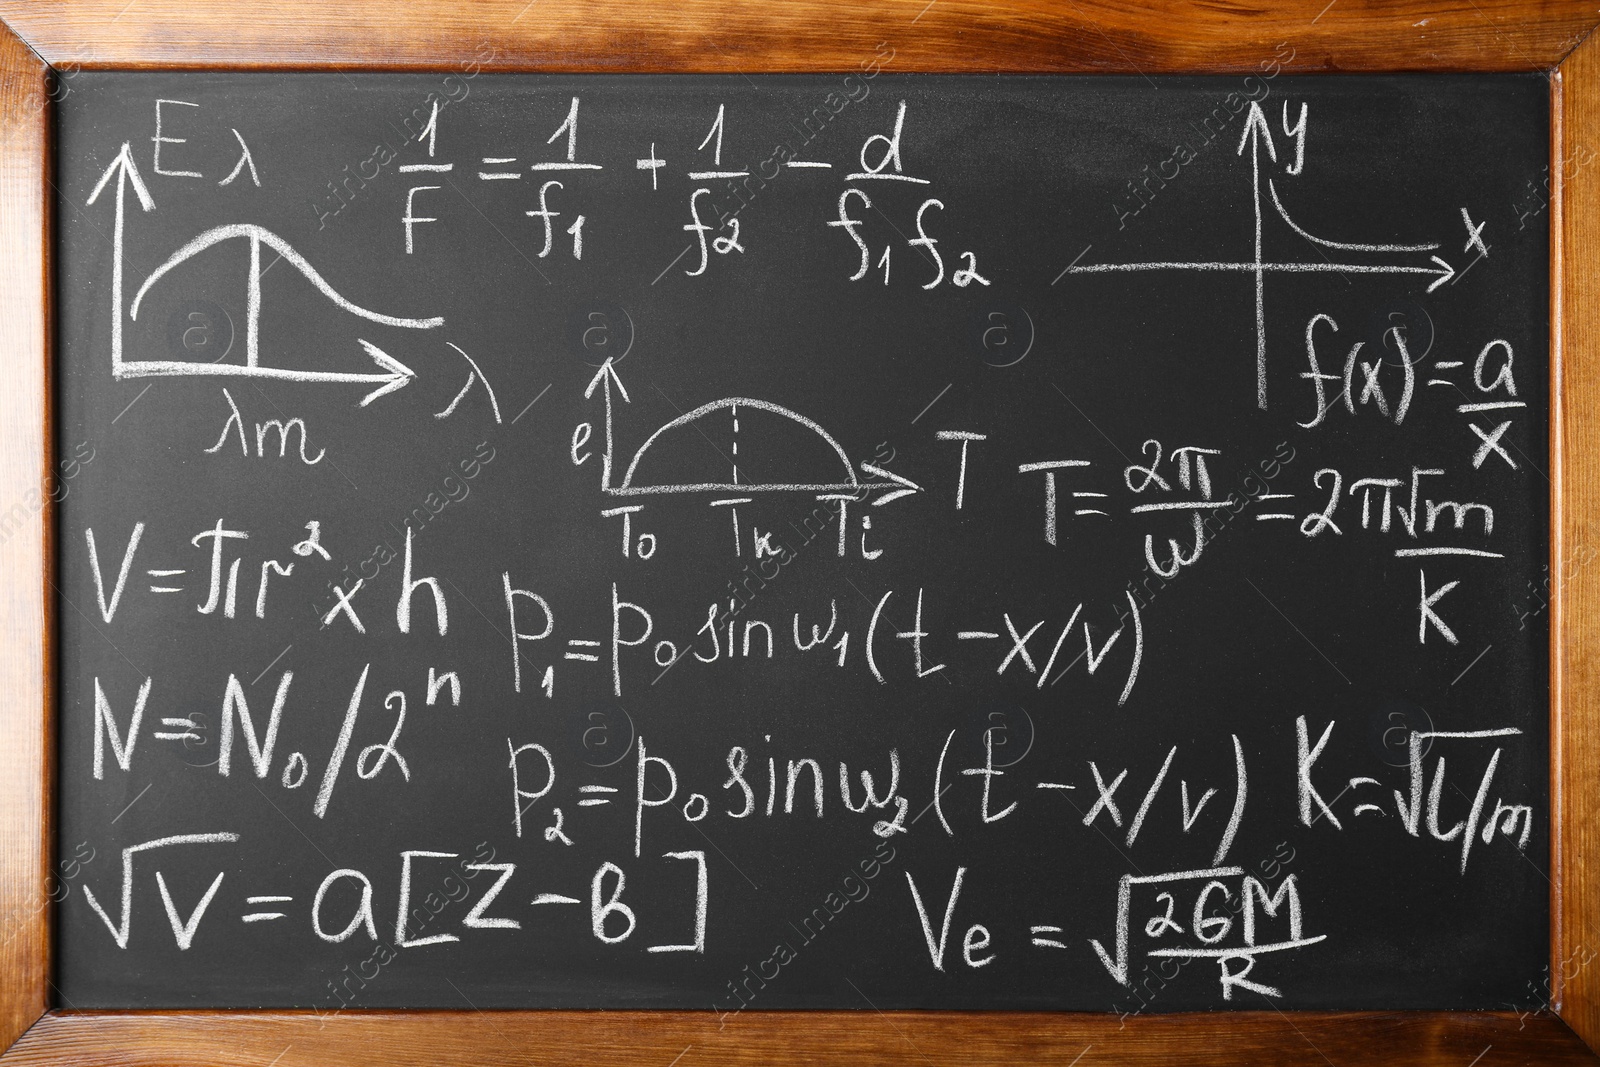 E λ
1/F = 1/f1 + 1/f2 − d/f1 f2
y
x
f(x) = a/x
λ
λm
e
T
T0 Tk Ti
T = 2π/ω = 2π√m/K
V = πr² x h
p1 = p0 sin ω1 (t − x/v)
N = N0/2ⁿ
p2 = p0 sin ω2 (t − x/v)
K = √L/m
√V = a[Z − B]
Ve = √2GM/R
Africa Images